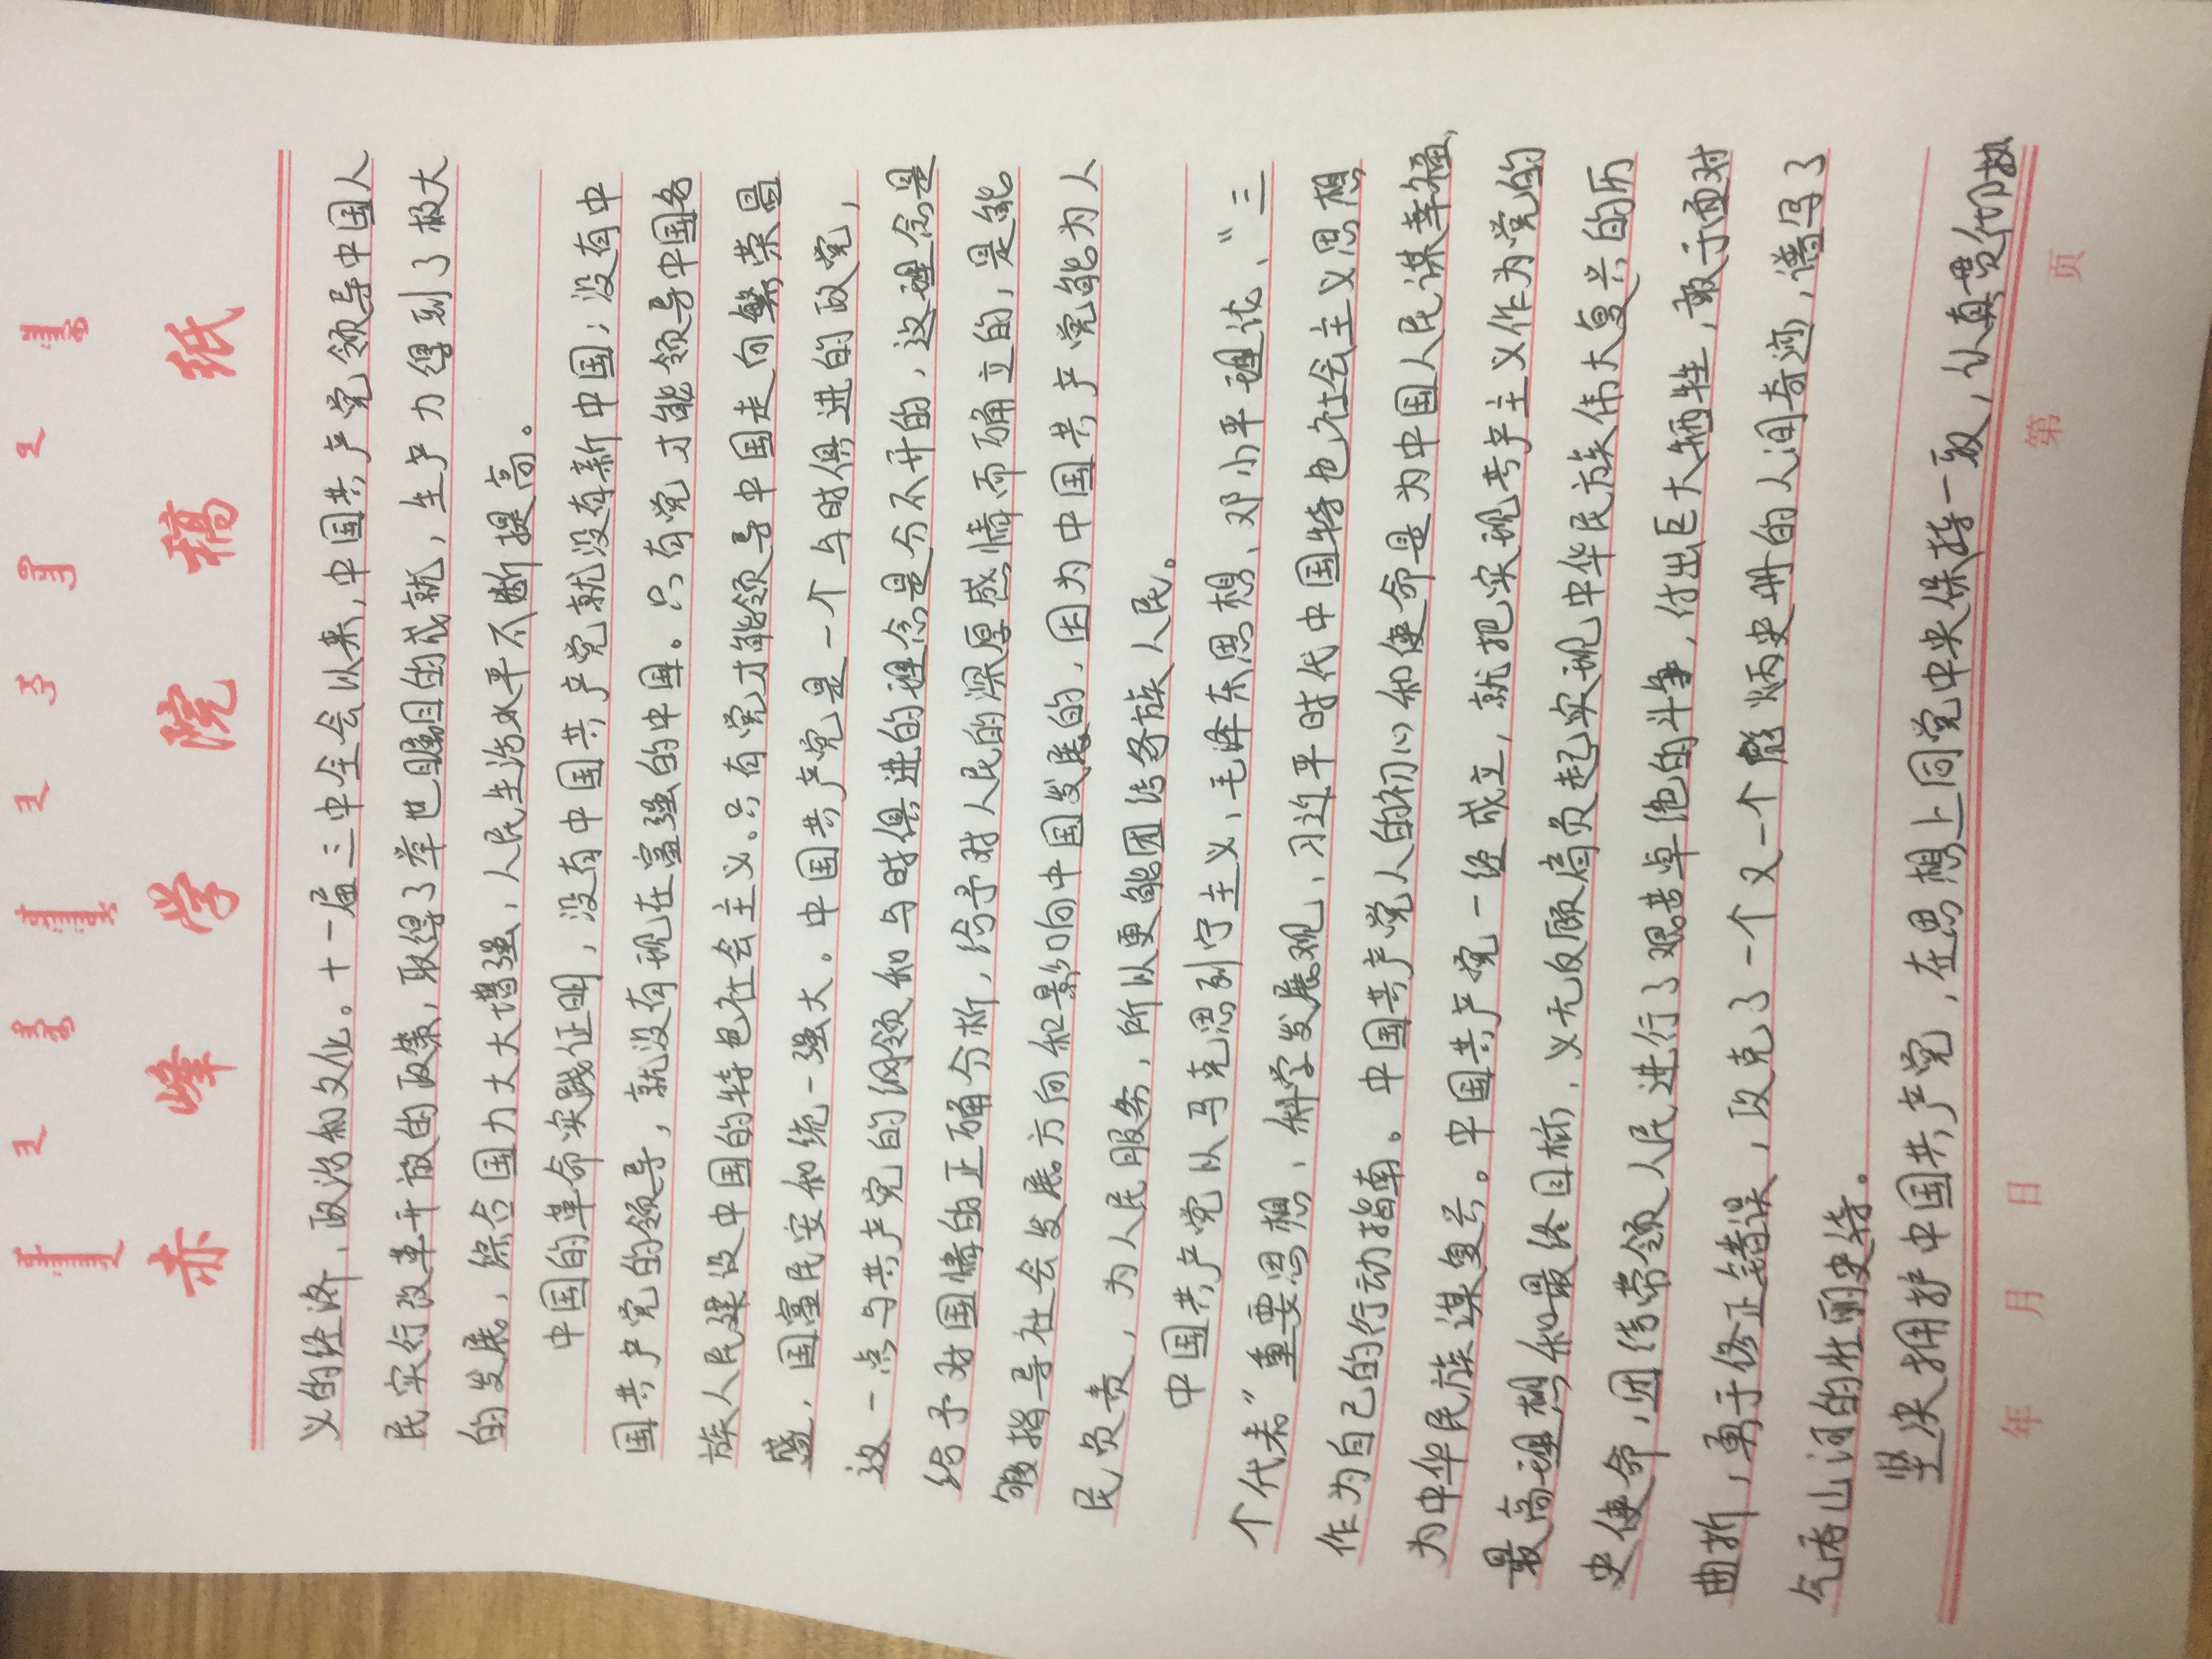 赤峰学院稿纸
义的经济,政治和文化。十一届三中全会以来,中国共产党领导中国人
民实行改革开放的政策,取得了举世瞩目的成就,生产力得到了极大
的发展,综合国力大大增强,人民生活水平不断提高。
中国的革命实践证明,没有中国共产党就没有新中国;没有中
国共产党的领导,就没有现在富强的中国。只有党才能领导中国各
族人民建设中国的特色社会主义。只有党才能领导中国走向繁荣昌
盛,国富民安和统一强大。中国共产党是一个与时俱进的政党,
这一点与共产党的纲领和与时俱进的理念是分不开的,这理念是
给予对国情的正确分析,给予对人民的深厚感情而确立的,是能
够指导社会发展方向和影响中国发展的,因为中国共产党能为人
民负责,为人民服务,所以更能团结各族人民。
中国共产党以马克思列宁主义、毛泽东思想、邓小平理论、“三
个代表”重要思想、科学发展观、习近平时代中国特色社会主义思想
作为自己的行动指南。中国共产党人的初心和使命是为中国人民谋幸福,
为中华民族谋复兴。中国共产党一经成立,就把实现共产主义作为党的
最高理想和最终目标,义无反顾肩负起实现中华民族伟大复兴的历
史使命,团结带领人民进行了艰苦卓绝的斗争,付出巨大牺牲,敢于面对
曲折,勇于修正错误,攻克了一个又一个彪炳史册的人间奇迹,谱写了
气吞山河的壮丽史诗。
坚决拥护中国共产党,在思想上同党中央保持一致,认真贯彻执
年 月 日 第 页